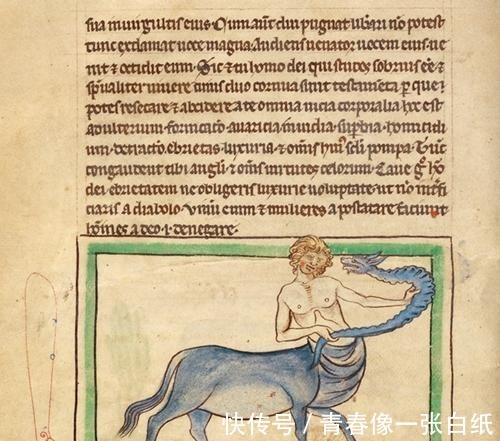 sua in uirgultis eius. Cum aūt diu pugnat libari nō potest
tunc exclamat uoce magna. Audiens uenator uocem eius ue
nit & occidit eum. Sic & tu homo dei qui studes sobrius eē &
sp̄ualiter uiuere cuius duo cornua sunt testam̄ta per que
potes resecare & abscidere a te omnia uicia corporalia hoc est
adulterium fornicatō auaricia inuidia supbia homicidi
um detractō ebrietas luxuria & om̄is huī sc̄li pompa. Tūc
congaudent tibi angl̄i & om̄s uirtutes celorum. Caue gͦ hō
dei ebrietatem ne obligeris luxurie uoluptate ut nō int̄fi
ciaris a diabolo. Vinū enim & mulieres apostatare faciunt
hoīnes a deo .i. denegare.
快传号 / 青春像一张白纸